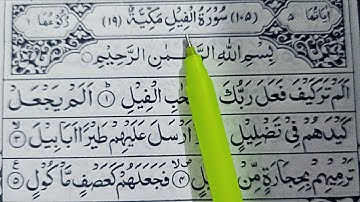 اٰيَاتُهَا ٥ (١٠٥) سُوْرَةُ الْفِيْلِ مَكِّيَّةٌ (١٩) رُكُوْعُهَا
بِسْمِ اللّٰهِ الرَّحْمٰنِ الرَّحِيْمِ
اَلَمْ تَرَ كَيْفَ فَعَلَ رَبُّكَ الْفِيْلِ ۱ اَلَمْ يَجْعَلْ
كَيْدَهُمْ فِيْ تَضْلِيْلٍ اَرْسَلَ عَلَيْهِمْ طَيْرًا اَبَابِيْلَ ۳
تَرْمِيْهِمْ بِحِجَارَةٍ مِّنْ ۴ فَجَعَلَهُمْ كَعَصْفٍ مَّاْكُوْلٍ ۵